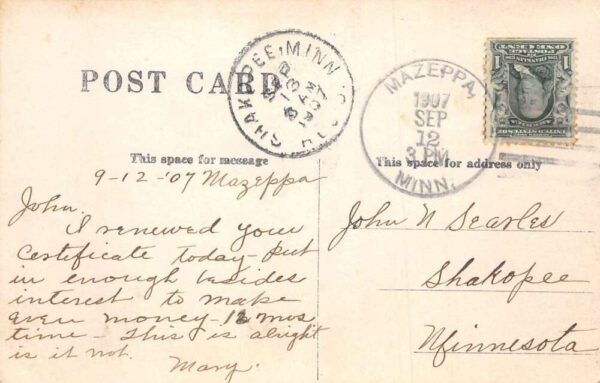 POST CARD
SHAKOPEE, MINN
SEP
13
8 AM
1907
MAZEPPA,
1907
SEP
12
3 PM
MINN.
This space for message
This space for address only
9-12-'07 Mazeppa
John.
I renewed your
certificate today - put
in enough besides
interest to make
even money - 12 mos
time - This is alright
is it not.
Mary.
John N Searles
Shakopee
Minnesota